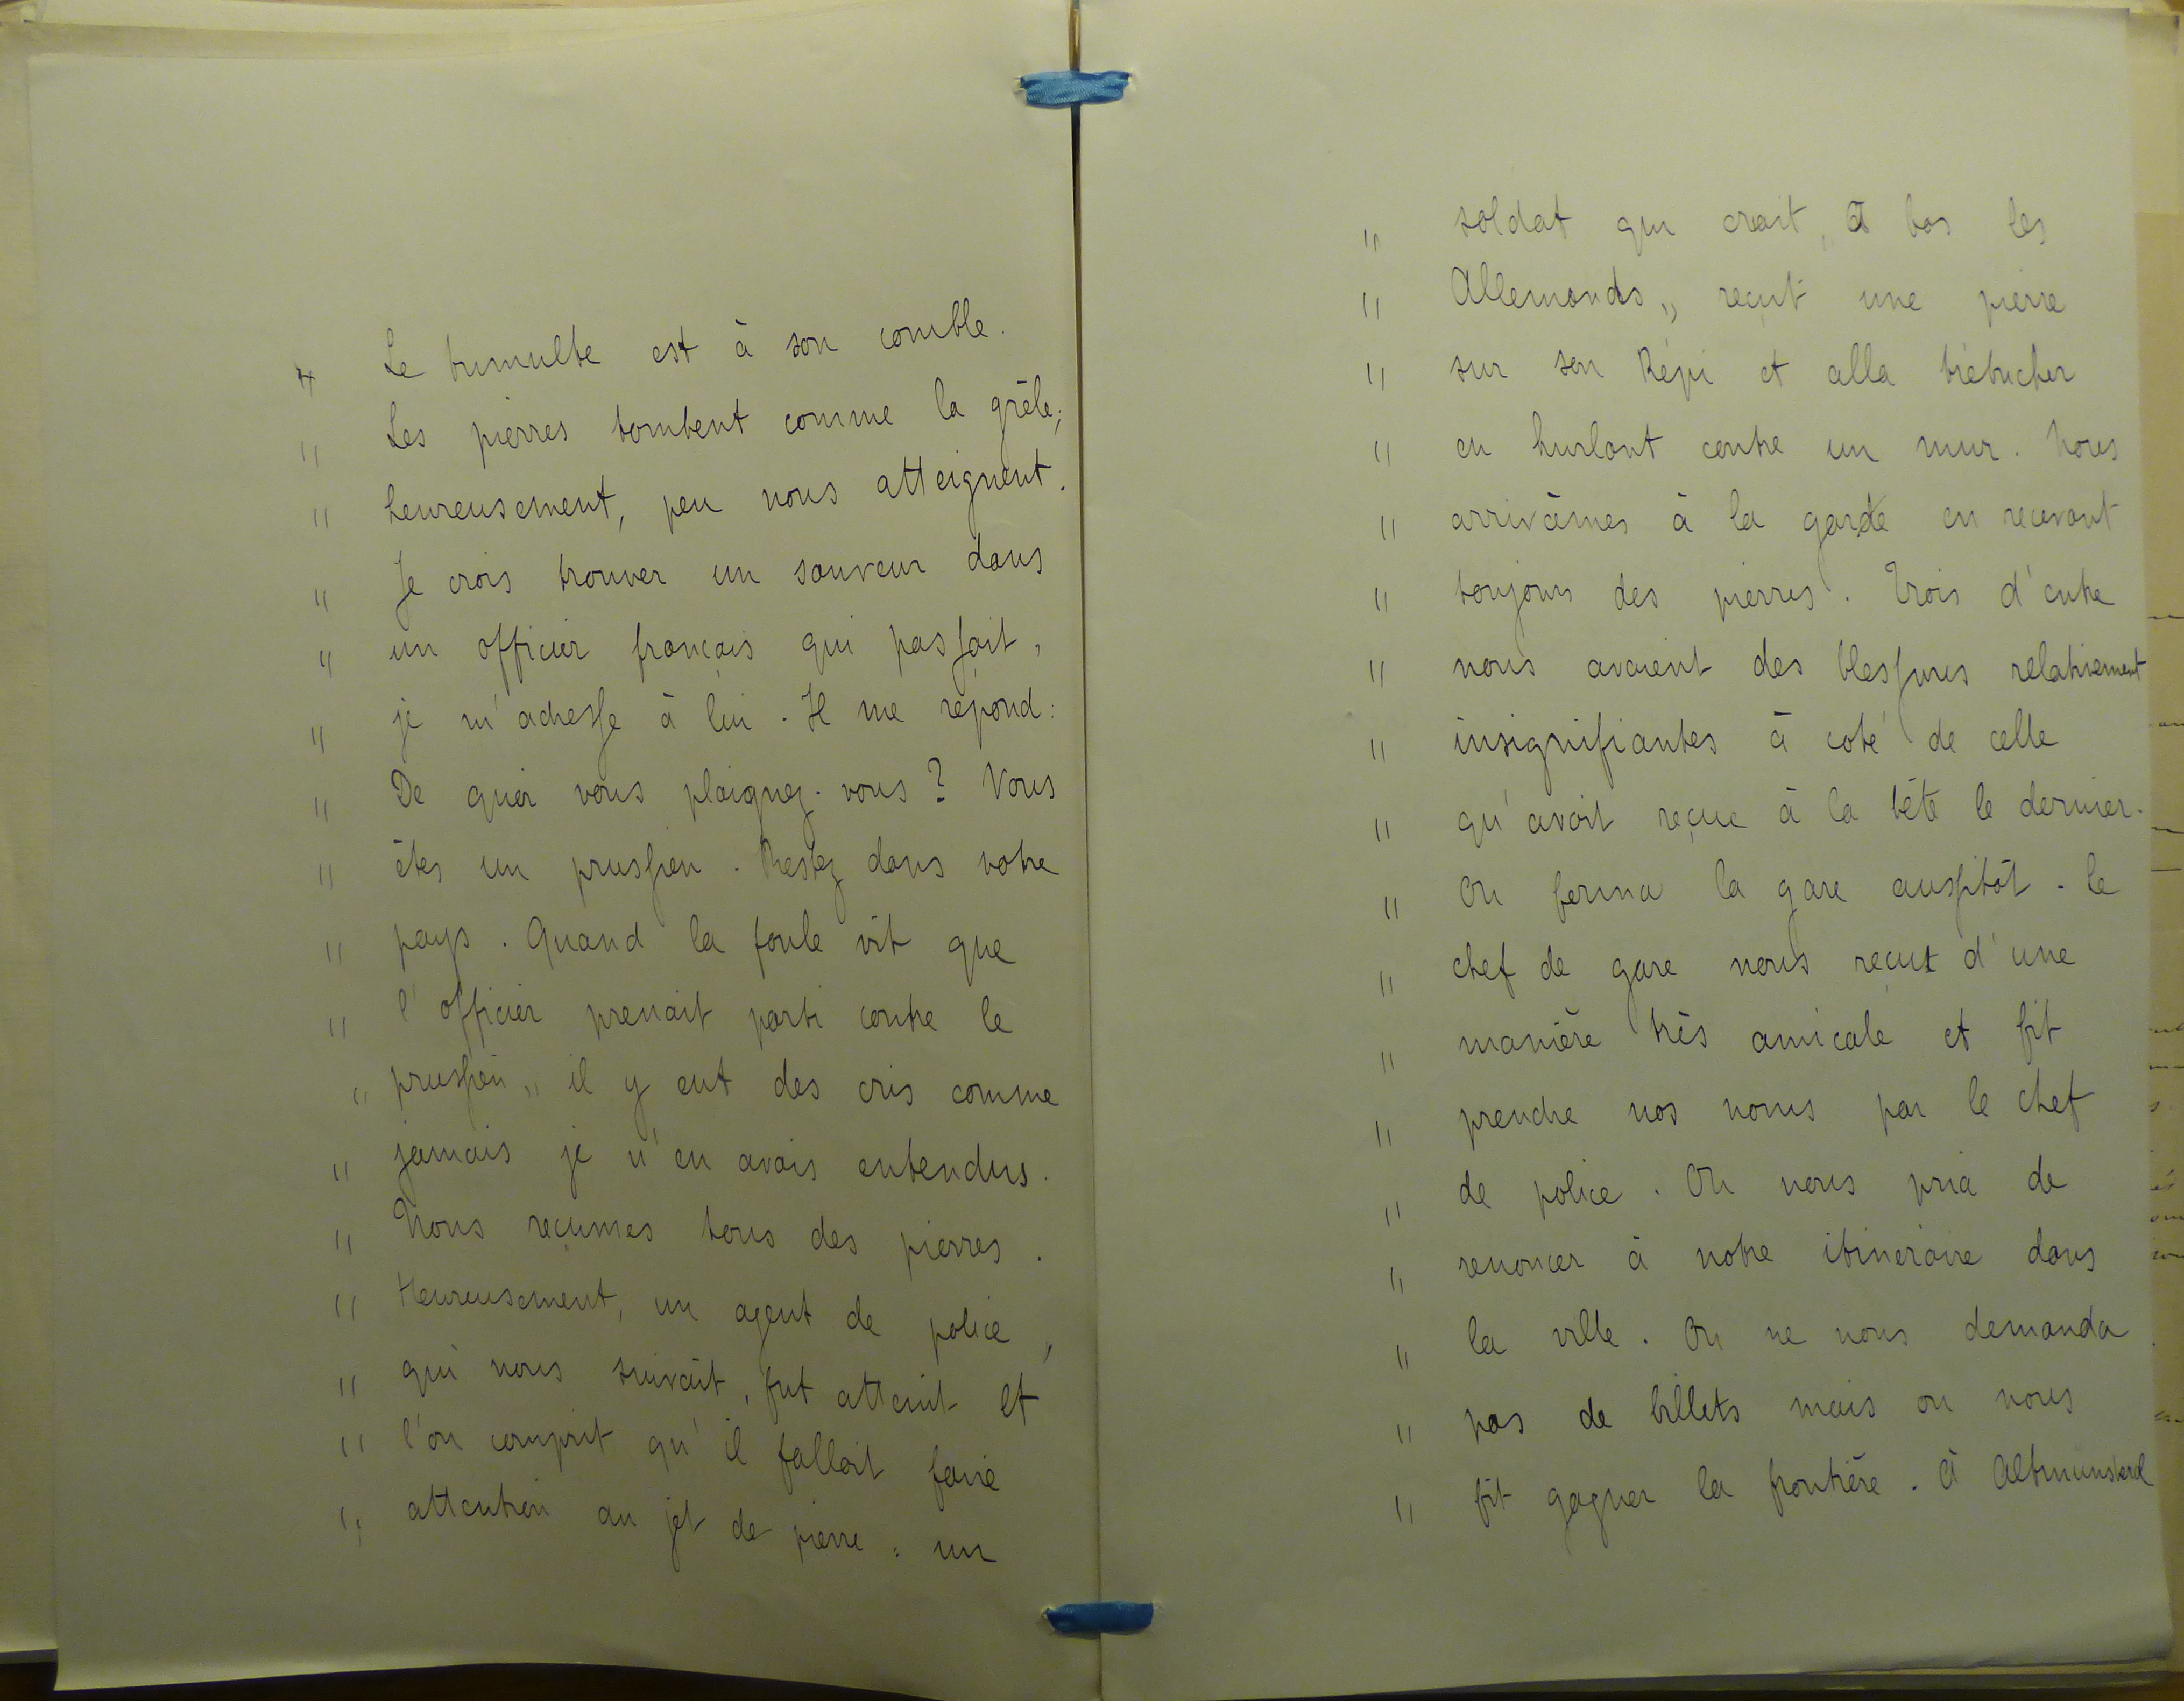 " Le tumulte est à son comble.
" Les pierres tombent comme la grêle;
" heureusement, peu nous atteignent.
" Je crois trouver un sauveur dans
" un officier français qui passait,
" je m'adresse à lui. Il me répond:
" De quoi vous plaignez-vous? Vous
" êtes un prussien. Restez dans votre
" pays. Quand la foule vit que
" l'officier prenait parti contre le
" prussien" il y eut des cris comme
" jamais je n'en avais entendus.
" Nous reçumes tous des pierres.
" Heureusement, un agent de police,
" qui nous suivait, fut atteint et
" l'on comprit qu'il fallait faire
" attention au jet de pierre: un
" soldat qui criait "A bas les
" Allemands" reçut une pierre
" sur son Képi et alla trébucher
" en hurlant contre un mur. Nous
" arrivâmes à la garde en recevant
" toujours des pierres. Trois d'entre
" nous avaient des blessures relativement
" insignifiantes à coté de celle
" qu'avait reçue à la tête le dernier.
" On ferma la gare aussitôt. le
" chef de gare nous reçut d'une
" manière très amicale et fit
" prendre nos noms par le chef
" de police. On nous pria de
" renoncer à notre itineraire dans
" la ville. On ne nous demanda
" pas de billets mais on nous
" fit gagner la frontière. A Altmünsterol